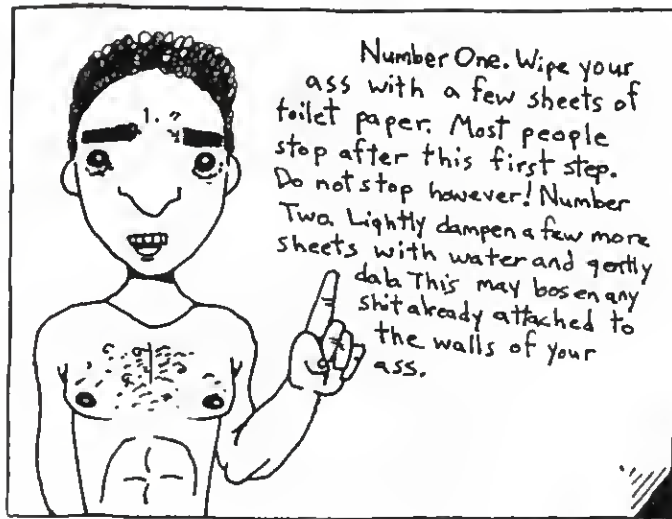 Number One. Wipe your
ass with a few sheets of
toilet paper. Most people
stop after this first step.
Do not stop however! Number
Two. Lightly dampen a few more
sheets with water and gently
dab. This may loosen any
shit already attached to
the walls of your
ass.